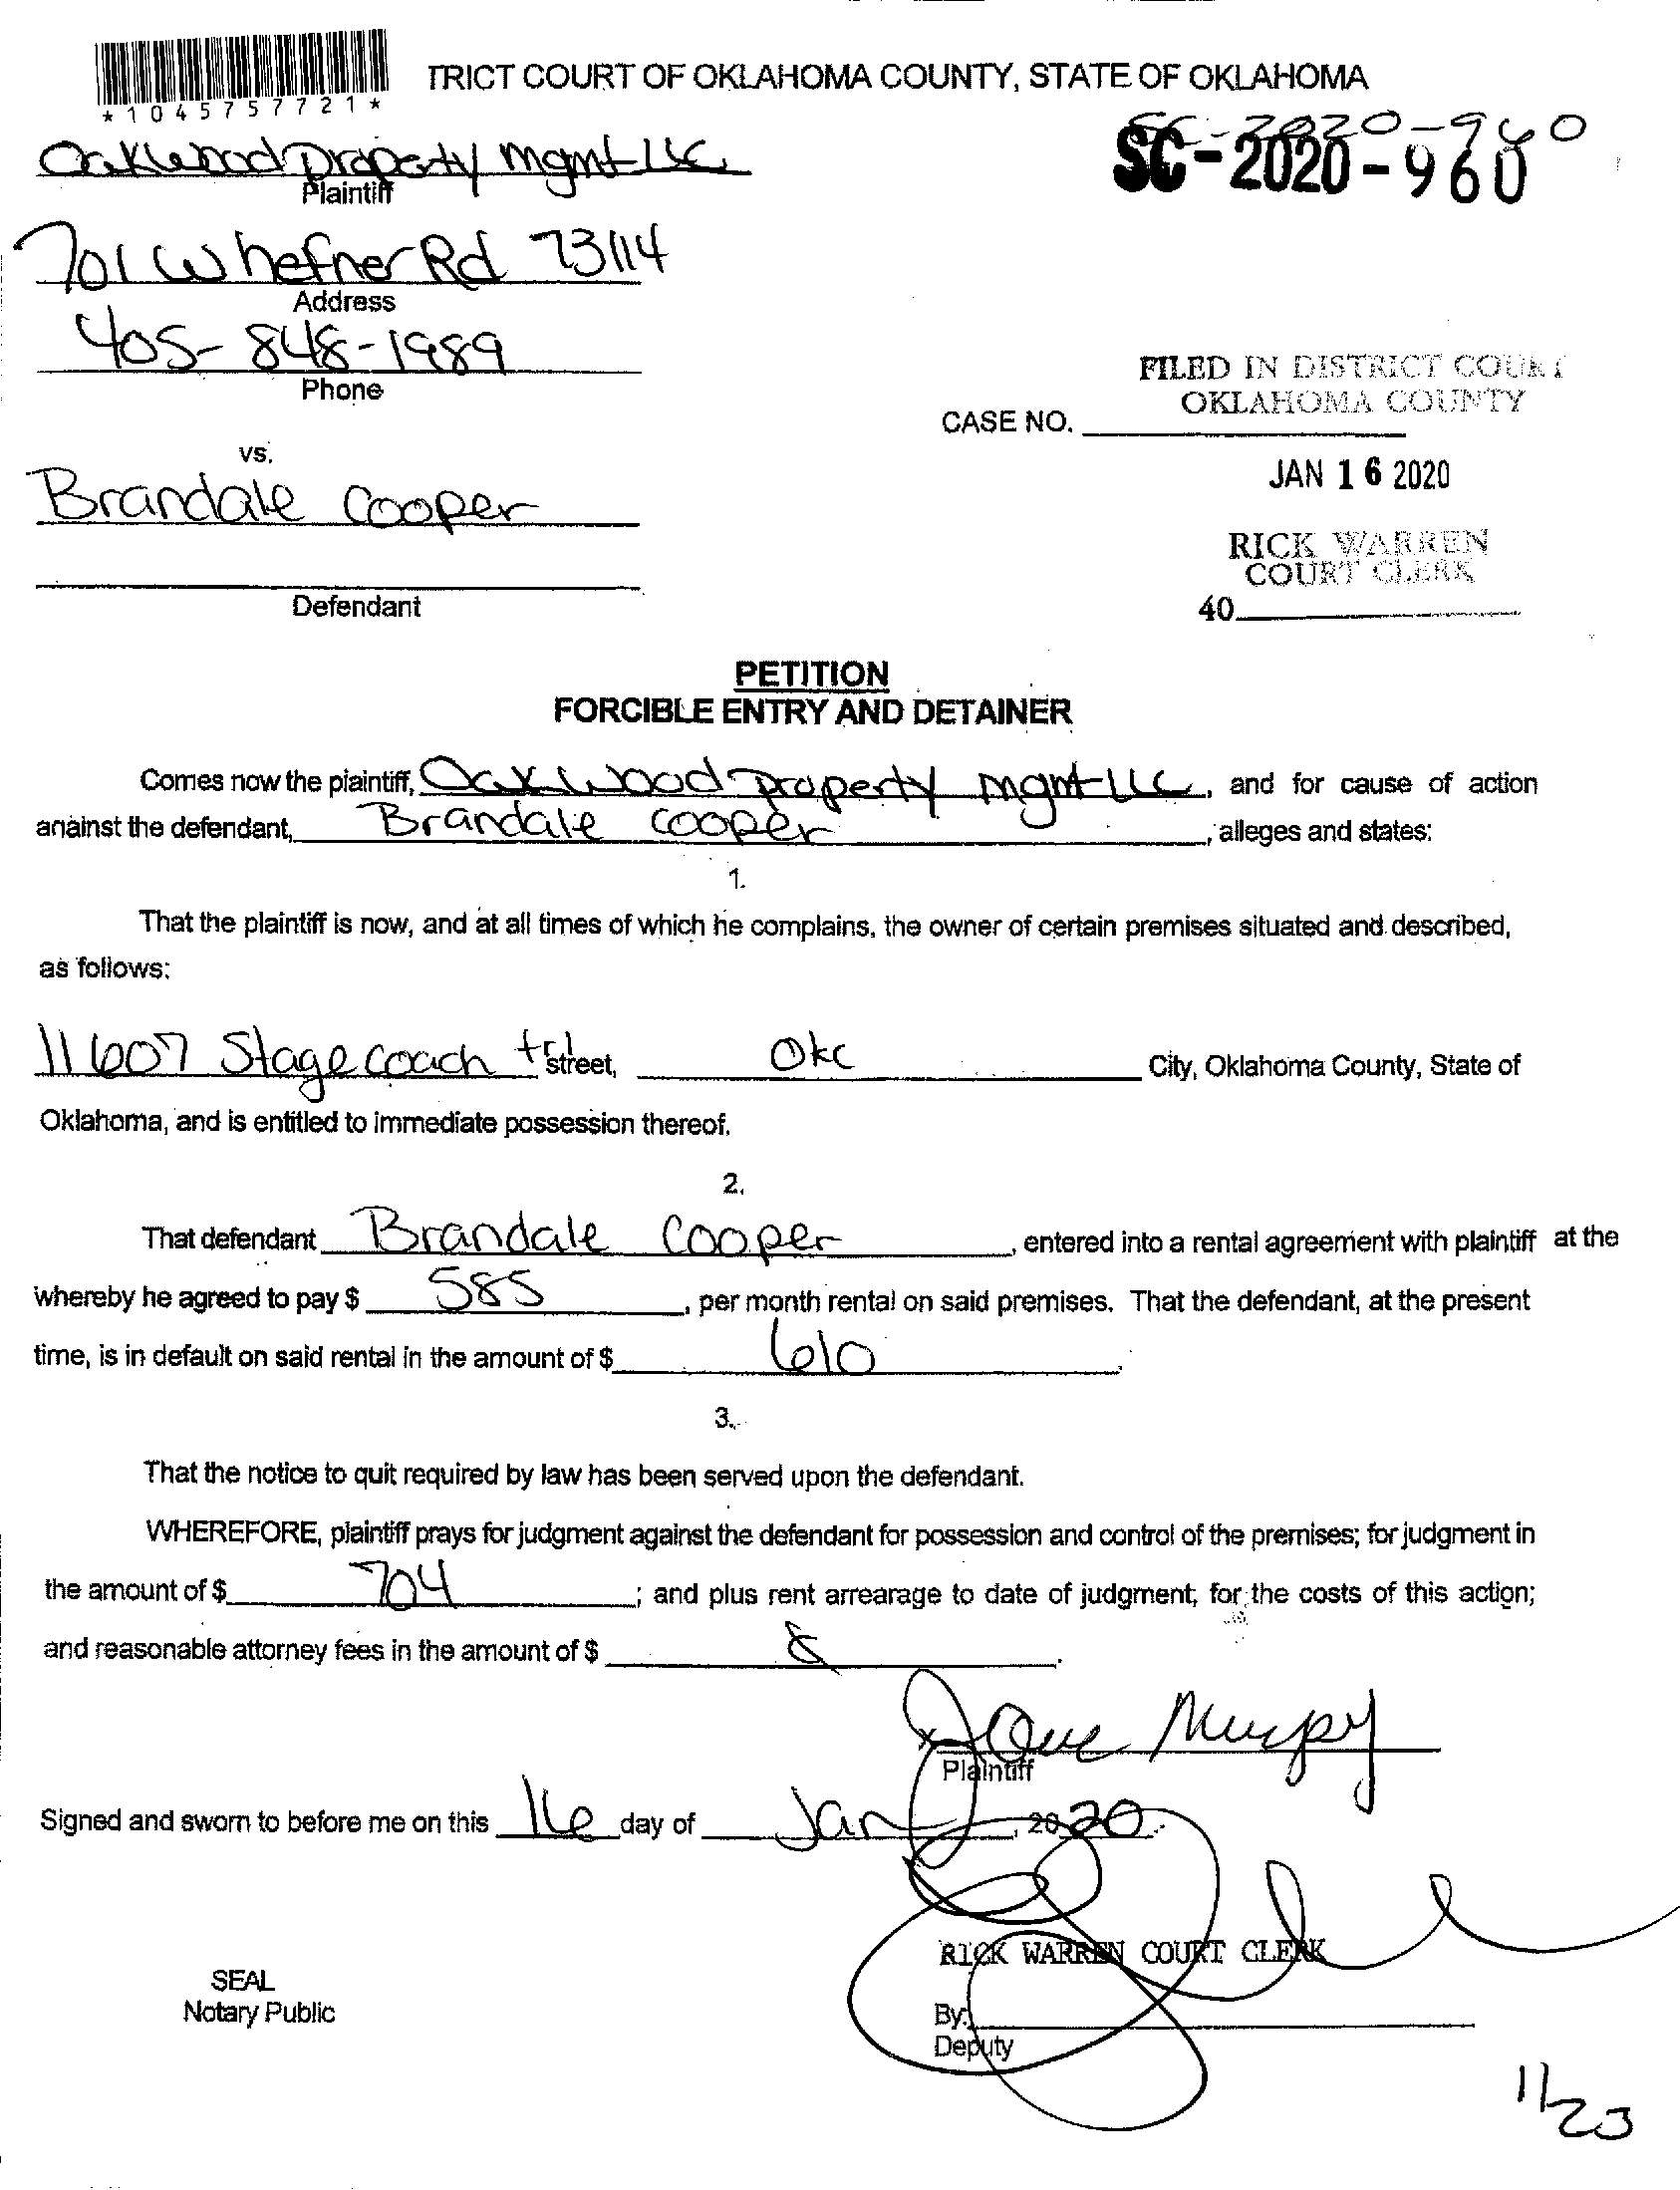 *1045757721*
TRICT COURT OF OKLAHOMA COUNTY, STATE OF OKLAHOMA
SC-2020-960
SC-2020-960
Oakwood Property mgmt LLC
Plaintiff
701 W hefner Rd 73114
Address
405-848-1989
Phone
FILED IN DISTRICT COURT
OKLAHOMA COUNTY
CASE NO.
vs.
JAN 16 2020
Brandale Cooper
RICK WARREN
COURT CLERK
Defendant
40
PETITION
FORCIBLE ENTRY AND DETAINER
Comes now the plaintiff, Oakwood Property mgmt LLC, and for cause of action
against the defendant, Brandale Cooper, alleges and states:
1.
That the plaintiff is now, and at all times of which he complains, the owner of certain premises situated and described,
as follows:
11607 Stage coach trl street, Okc City, Oklahoma County, State of
Oklahoma, and is entitled to immediate possession thereof.
2.
That defendant Brandale Cooper, entered into a rental agreement with plaintiff at the
whereby he agreed to pay $ 585, per month rental on said premises. That the defendant, at the present
time, is in default on said rental in the amount of $ 610.
3.
That the notice to quit required by law has been served upon the defendant.
WHEREFORE, plaintiff prays for judgment against the defendant for possession and control of the premises; for judgment in
the amount of $ 704; and plus rent arrearage to date of judgment, for the costs of this action;
and reasonable attorney fees in the amount of $
x
Plaintiff
Signed and sworn to before me on this 16 day of Jan, 2020.
RICK WARREN COURT CLERK
SEAL
Notary Public
By:
Deputy
1/23